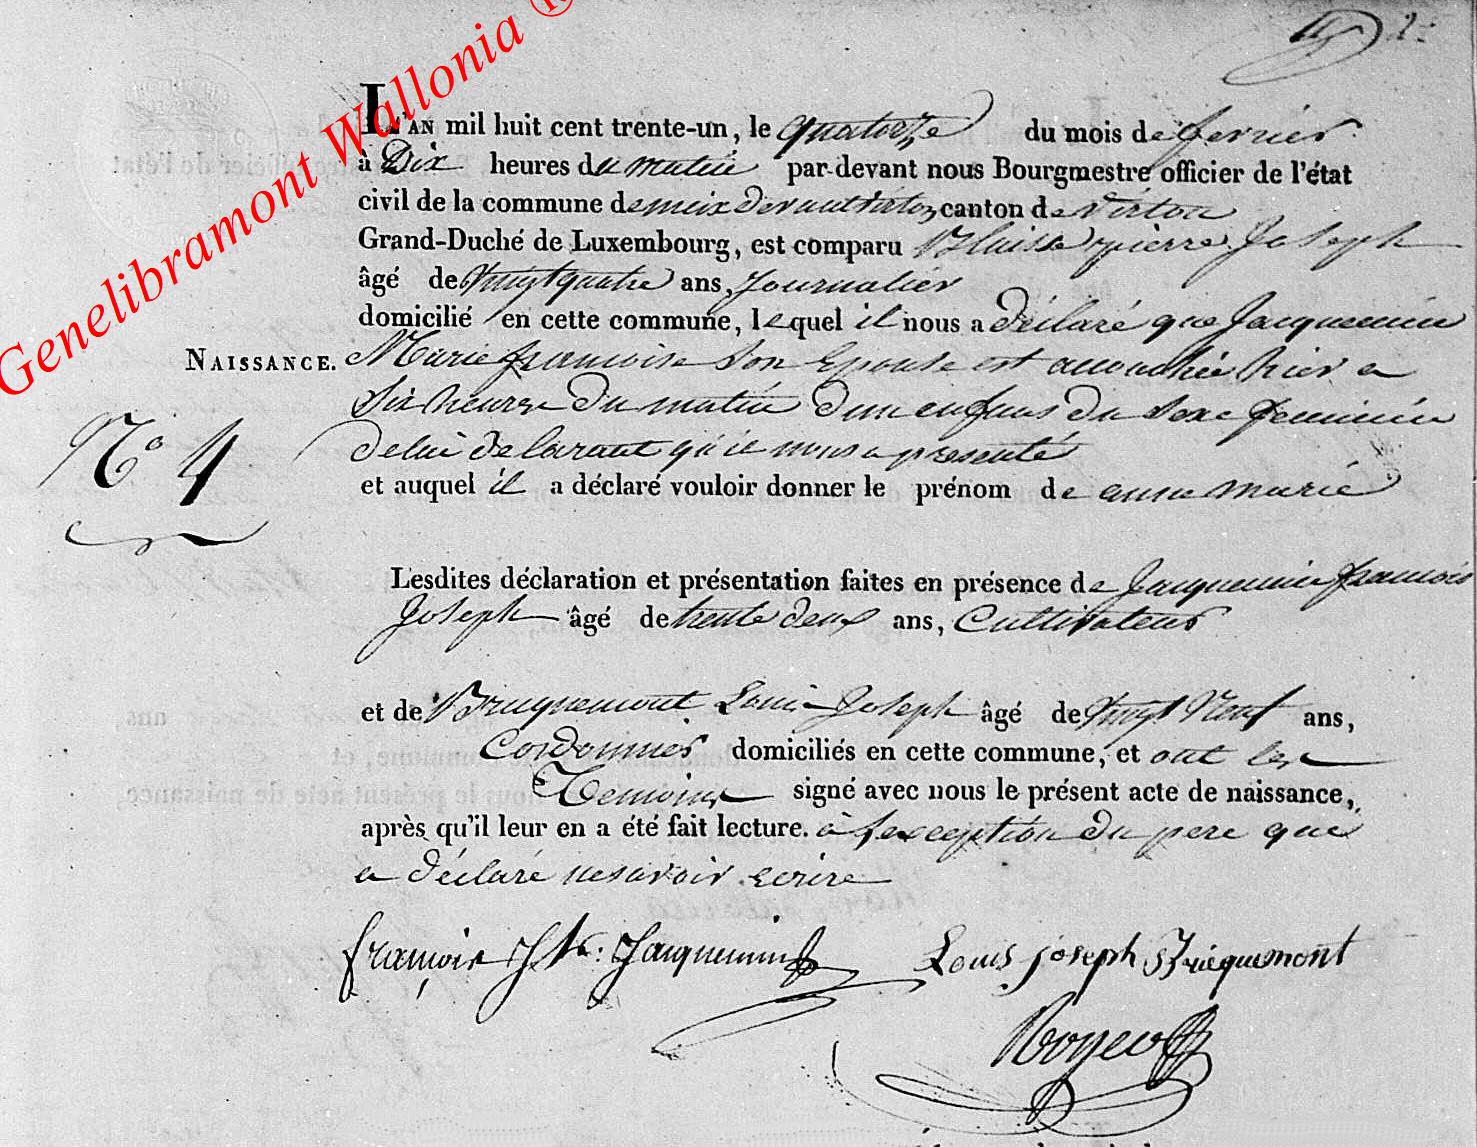 2
Genelibramont Wallonia ®
L'AN mil huit cent trente-un, le quatorze du mois de fevrier
à Dix heures du matin par-devant nous Bourgmestre officier de l'état
civil de la commune de meix devant virton canton de virton
Grand-Duché de Luxembourg, est comparu Blaise pierre Joseph
âgé de vingt quatre ans, Journalier
domicilié en cette commune, lequel il nous a déclaré que Jacquemin
NAISSANCE. Marie francoise Son Epouse est accouchée hier a
Six heures du matin d'un enfans du Sexe feminin
de lui declarant qu'il nous a presenté
et auquel il a déclaré vouloir donner le prénom de anne marie
No 4
Lesdites déclaration et présentation faites en présence de Jacquemin francois
Joseph âgé de trente deux ans, Cultivateur
et de Bricquemont Louis Joseph âgé de vingt Neuf ans,
Cordonnier domiciliés en cette commune, et ont les
Temoins signé avec nous le présent acte de naissance,
après qu'il leur en a été fait lecture. à l'exception du pere qui
a déclaré ne savoir ecrire
françois Jh: Jacquemin
Louis joseph Bricquemont